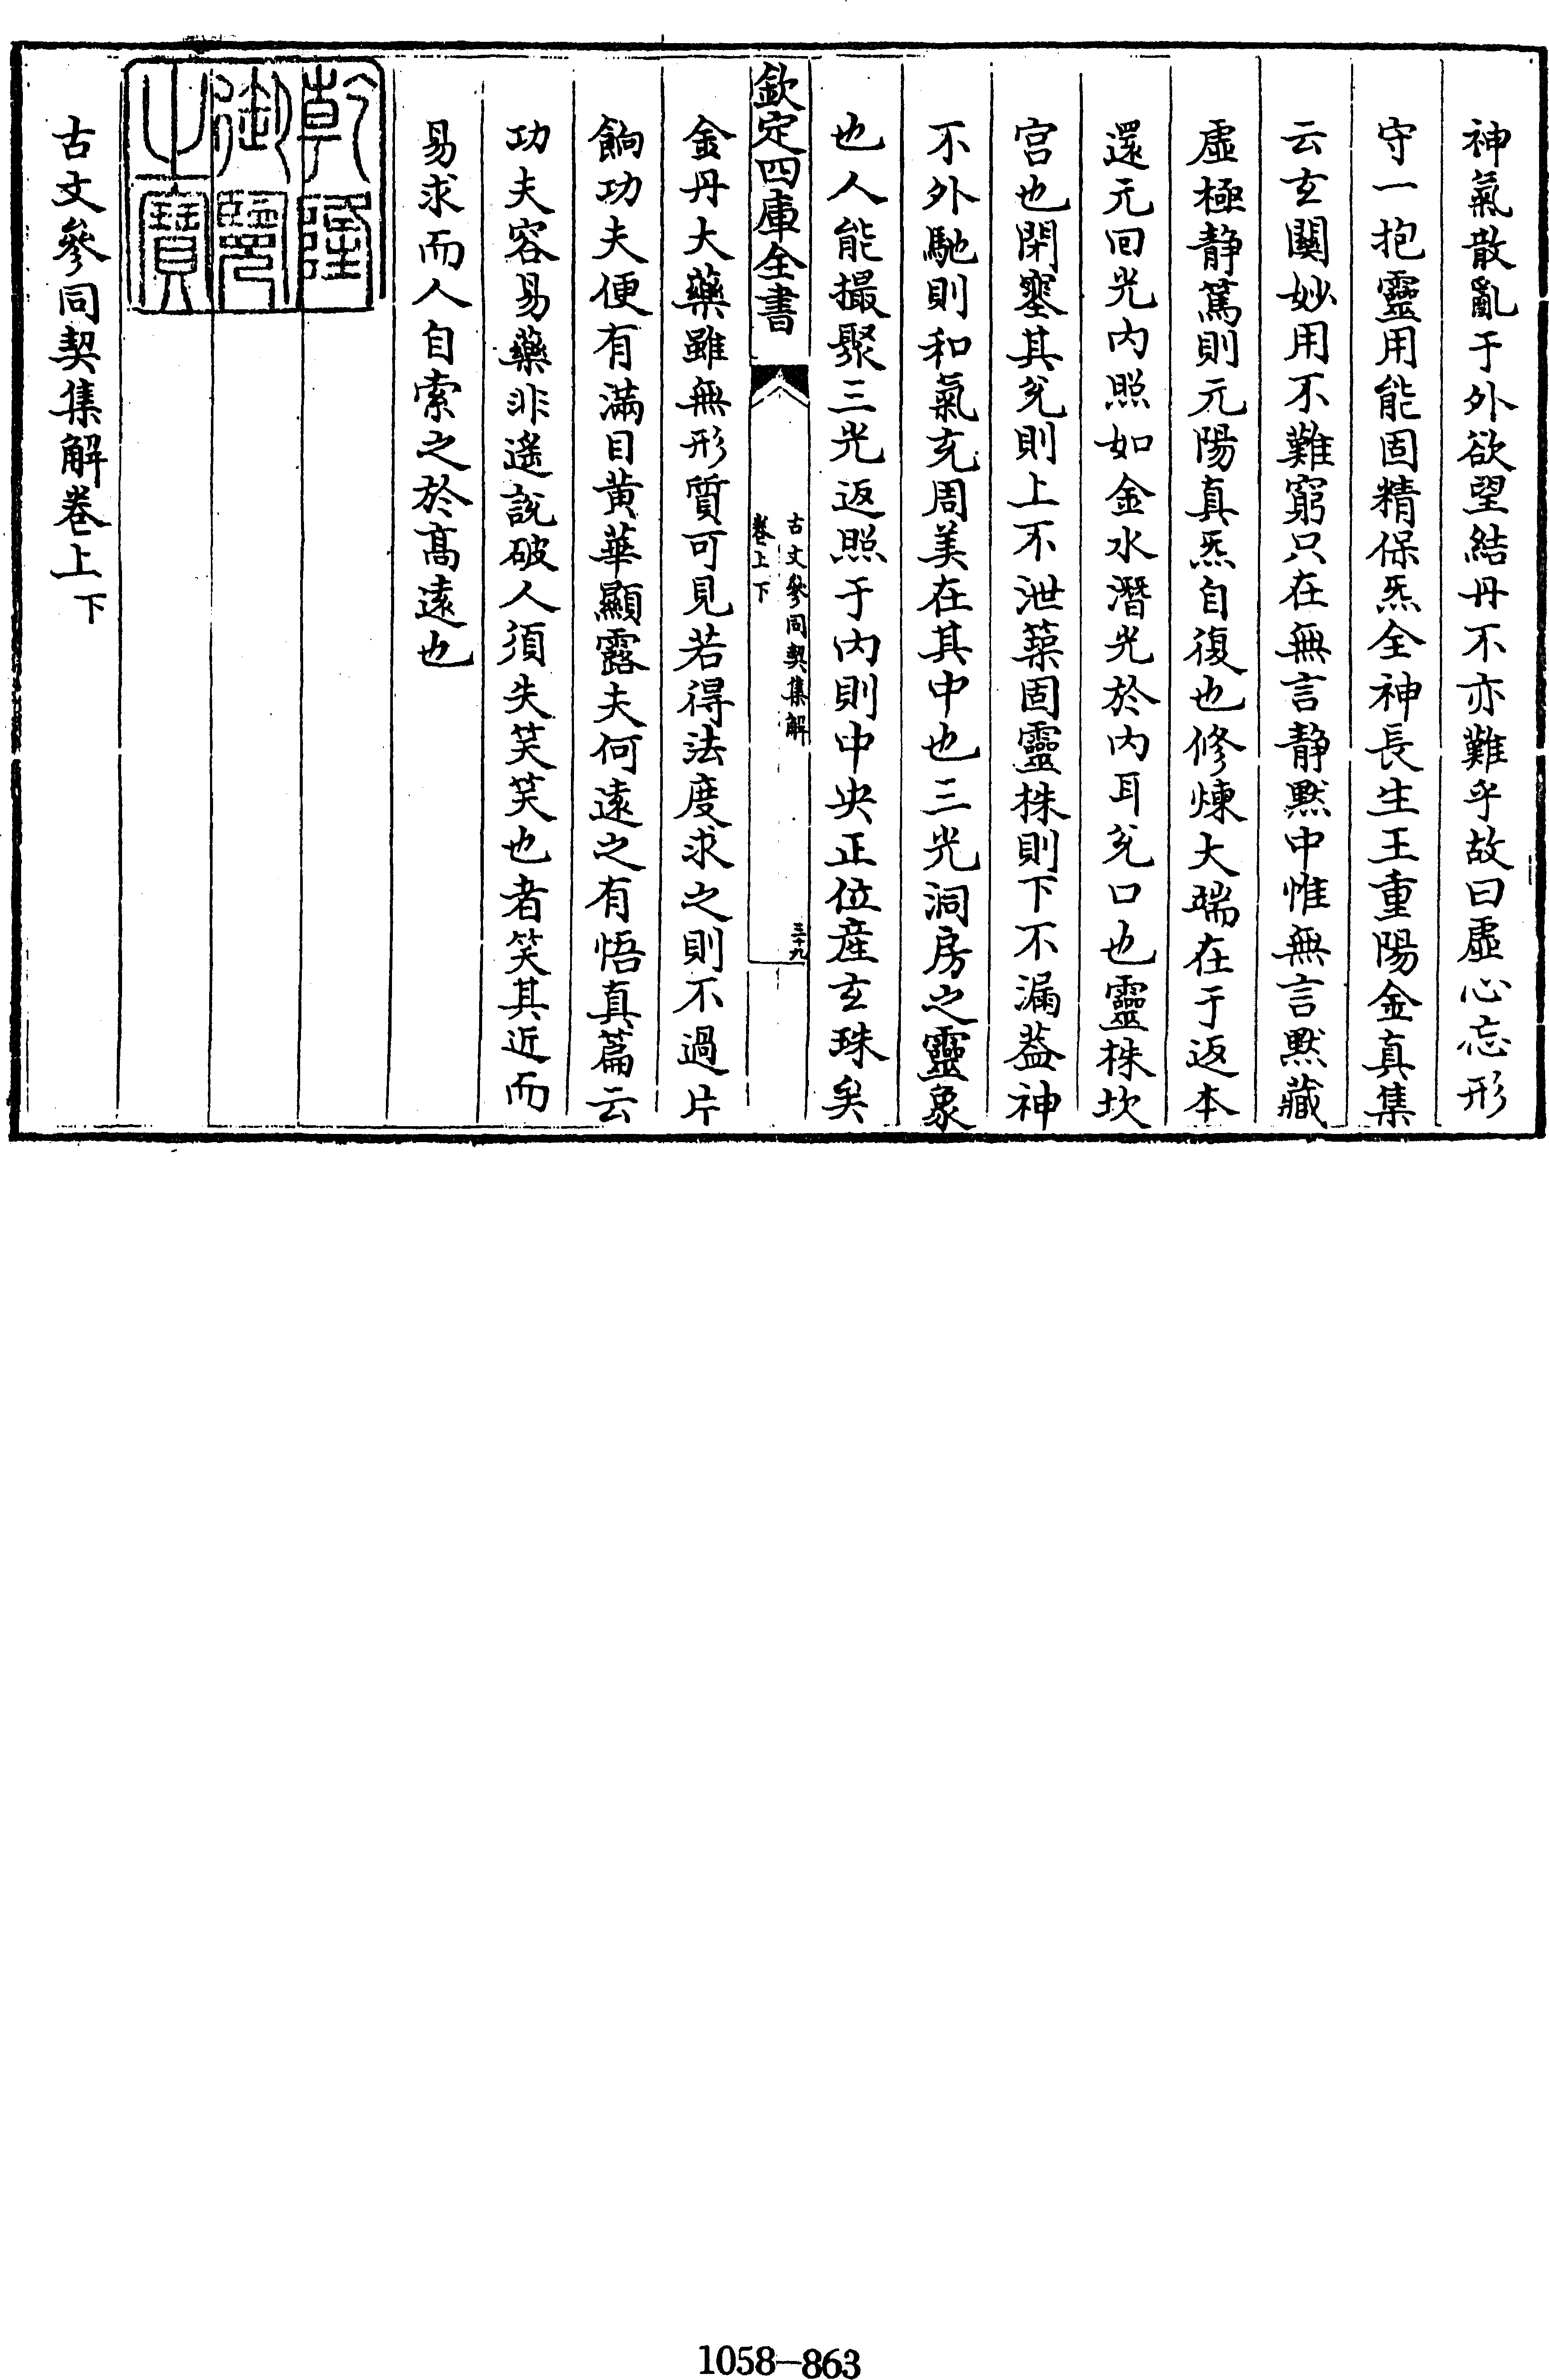 神氣散亂于外欲望結丹不亦難乎故曰虛心忘形
守一抱靈用能固精保炁全神長生王重陽金真集
云玄關妙用不難窮只在無言静黙中惟無言黙藏
虛極静篤則元陽真炁自復也修煉大端在于返本
還元回光内照如金水潛光於内耳兌口也靈株坎
宫也閉塞其兌則上不泄築固靈株則下不漏葢神
不外馳則和氣充周美在其中也三光洞房之靈象
也人能撮聚三光返照于内則中央正位産玄珠矣
欽定四庫全書
古文參同契集解
卷上下
三十九
金丹大藥雖無形質可見若得法度求之則不過片
餉功夫便有滿目黄華顯露夫何遠之有悟真篇云
功夫容易藥非遙說破人須失笑笑也者笑其近而
易求而人自索之於髙遠也
乾隆
御覽
之寶
古文參同契集解卷上下
1058-863